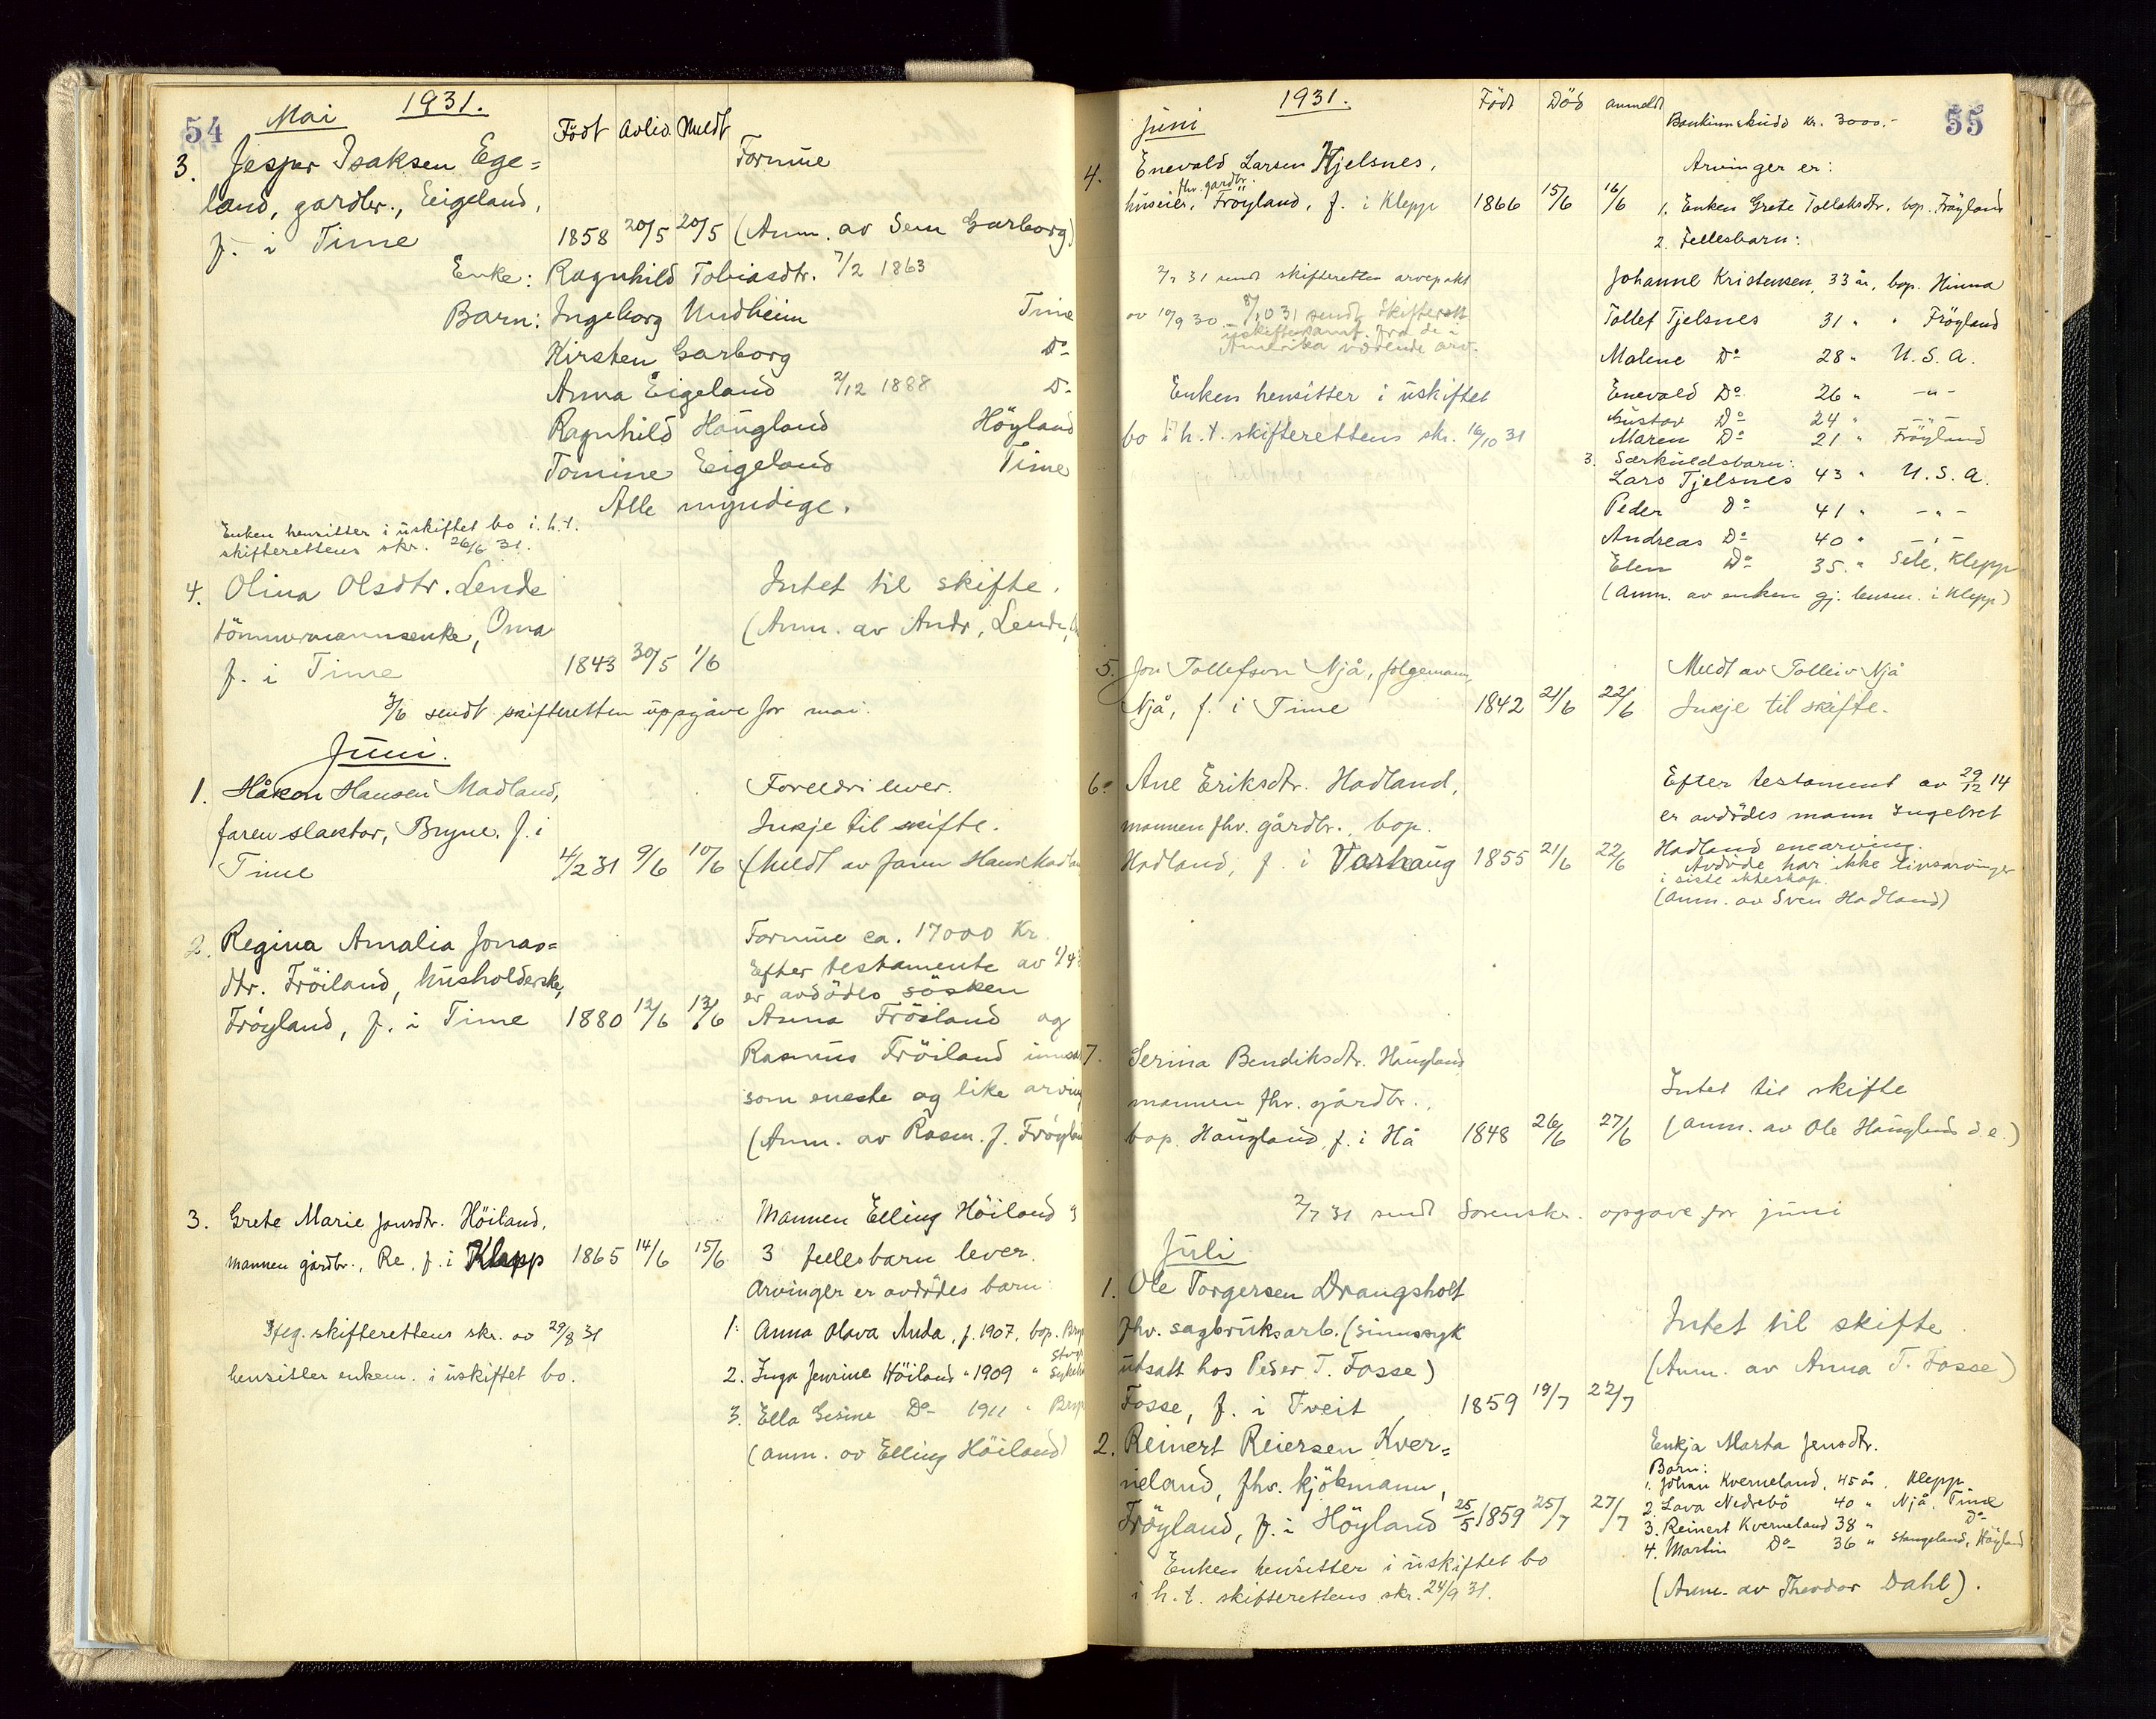 54
Mai 1931.
Födt Avlid. Meldt
3. Jesper Isaksen Ege= Formue
land, gardbr., Eigeland,
f. i Time 1858 20/5 20/5 (Anm. av Sem Garborg)
Enke: Ragnhild Tobiasdtr. 7/2 1863
Barn: Ingeborg Undheim Time
Kirsten Garborg Do-
Anna Eigeland 2/12 1888 D-
Ragnhild Haugland Höyland
Tomine Eigeland Time
Alle myndige.
Enken hensitter i uskiftet bo i. h. t.
skifterettens skr. 26/6 31.
4. Olina Olsdtr. Lende Intet til skifte.
tömmermannsenke, Oma (Anm. av Andr. Lende,
f. i Time 1843 30/5 1/6
3/6 sendt skifteretten uppgåve for mai.
Juni.
1. Håkon Hansen Madland, Foreldri lever.
faren slaktar, Bryne, f. i Inkje til skifte.
Time 4/2 31 9/6 10/6 (Meldt av faren Hans Madla
2. Regina Amalia Jonas= Formue ca. 17000 Kr.
dtr. Fröiland, husholderske, Efter testamente av 1/4
er avdödes sösken
Fröyland, f. i Time 1880 12/6 13/6 Anna Fröiland og
Rasmus Fröiland innsat
som eneste og like arving
(Anm. av Rasm. J. Fröylan
3. Grete Marie Jonsdtr. Höiland, Mannen Elling Höiland og
mannen gårdbr., Re, f. i Klepp 1865 14/6 15/6 3 fellesbarn lever.
Arvinger er avdödes barn:
Iflg. skifterettens skr. av 29/8 31 1. Anna Olava Anda, f. 1907, bop. Bry
hensitter enkem. i uskiftet bo. 2. Inga Jensine Höiland " 1909 "
3. Ella Gesine Do- 1911 " Bry
(anm. av Elling Höiland)
55
1931.
Juni Födt Död anmeldt Bankinnskudd Kr. 3000.-
4. Enevald Larsen Tjelsnes, Arvinger er:
fhv. gardbr.
huseier, Fröyland, f. i Klepp 1866 15/6 16/6 1. Enken Grete Tollaksdtr. bop. Fröyland
2. Fellesbarn:
2/7 31 sendt skifteretten arvepakt Johanne Kristensen, 33 år, bop. Hinna
av 19/9 30. 8/10 31 sendt skifterett Tollef Tjelsnes 31 " " Fröyland
uskiftesamt. fra de i
Amerika værende arv. Malene Do 28 " U. S. A.
Enken hensitter i uskiftet Enevald Do 26 " -"-
Gustav Do 24 " -"-
bo i h. t. skifterettens skr. 16/10 31 Maren Do 21 " Fröyland
3. Særkuldsbarn:
Lars Tjelsnes 43 " U. S. A.
Peder Do 41 " -"-
Andreas Do 40 " -"-
Elen Do 35 " Sele, Klepp
(anm. av enken gj. lensm. i Klepp)
5. Jon Tollefson Njå, folgemann, Meldt av Tolleiv Njå
Njå, f. i Time 1842 21/6 22/6 Inkje til skifte.
6. Ane Eriksdtr. Hadland, Efter testament av 29/12 14
mannen fhv. gårdbr., bop. er avdödes mann Ingebret
Hadland, f. i Varhaug 1855 21/6 22/6 Hadland enearving.
Avdöde har ikke livsarvinger
i siste ekteskap.
(anm. av Sven Hadland)
7. Serina Bendiksdtr. Haugland
mannen fhv. gårdbr., Intet til skifte
bop. Haugland, f. i Hå 1848 26/6 27/6 (anm. av Ole Haugland d. e.)
2/7 31 sendt Sorenskr. opgave for juni
Juli
1. Ole Torgersen Drangsholt
fhv. sagbruksarb. (sinnssyk Intet til skifte
utsatt hos Peder T. Fosse) (Anm. av Anna T. Fosse)
Fosse, f. i Tveit 1859 19/7 22/7
2. Reinert Reiersen Kver= Enkja Marta Jensdtr.
Born:
neland, fhv. kjökmann, 1. Johan Kverneland, 45 år, Klepp
2. Lava Nedrebö 40 " Njå, Time
Fröyland, f. i Höyland 25/5 1859 25/7 27/7 3. Reinert Kverneland 38 " Do-
4. Martin Do- 36 " Stangeland, Höyland
Enken hensitter i uskiftet bo
i h. t. skifterettens skr. 24/9 31. (Anm. av Theodor Dahl).